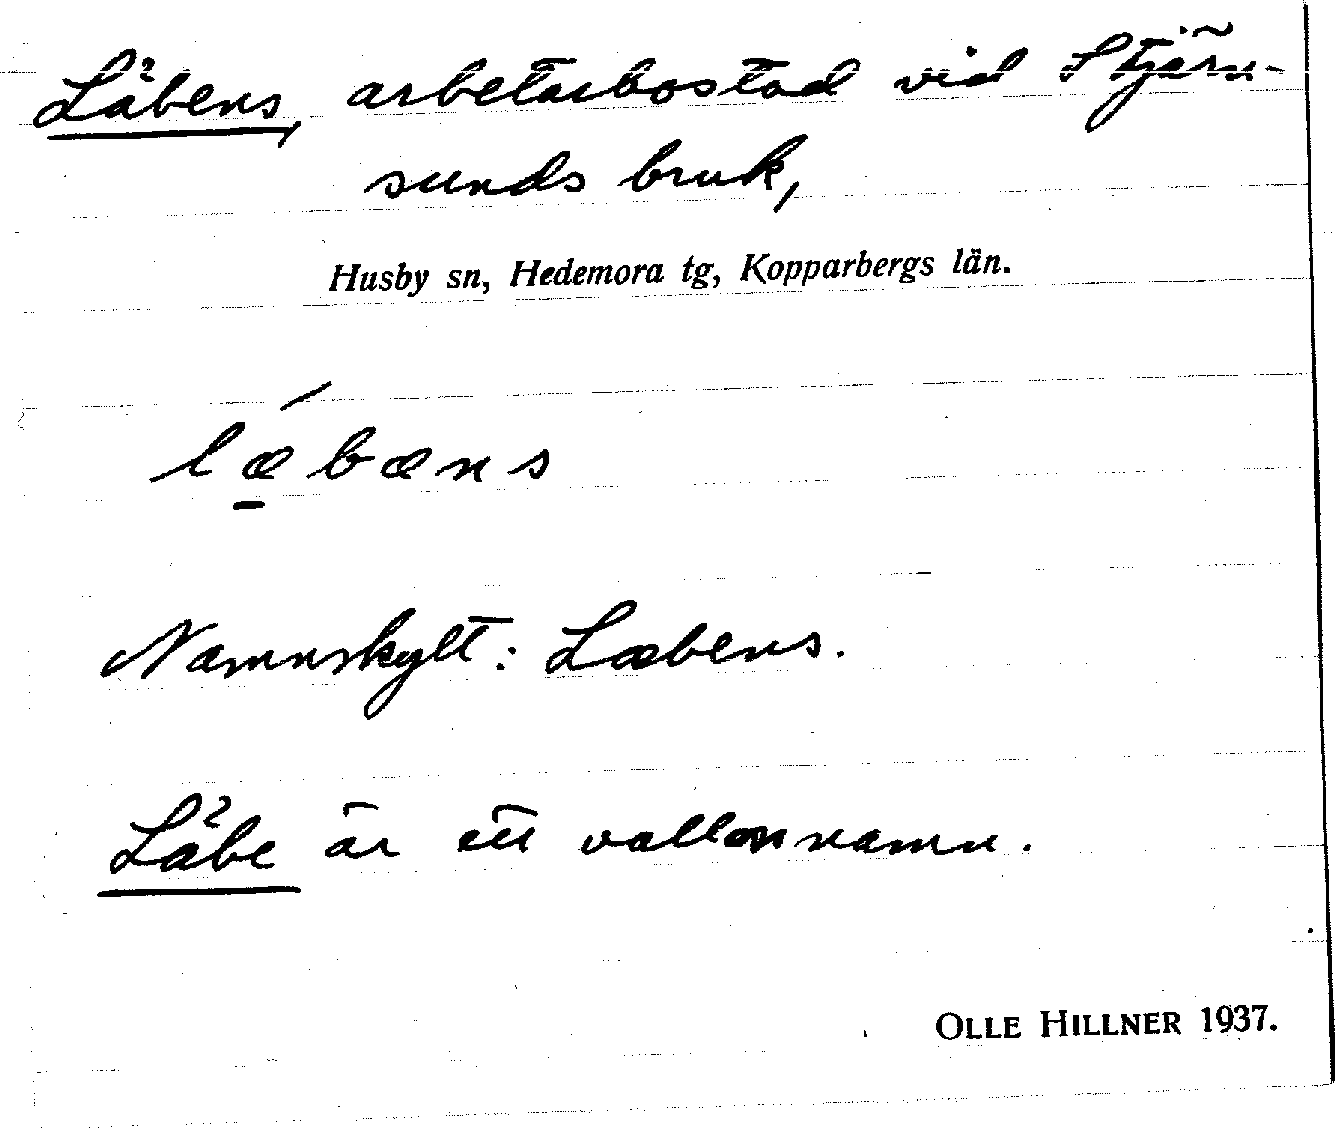 Läbens, arbetarbostad vid Stjärn-
sunds bruk,
Husby sn, Hedemora tg, Kopparbergs län.
lǽ̱bæns
Namnskylt: Læbens.
Läbe är ett vallonnamn.
OLLE HILLNER 1937.